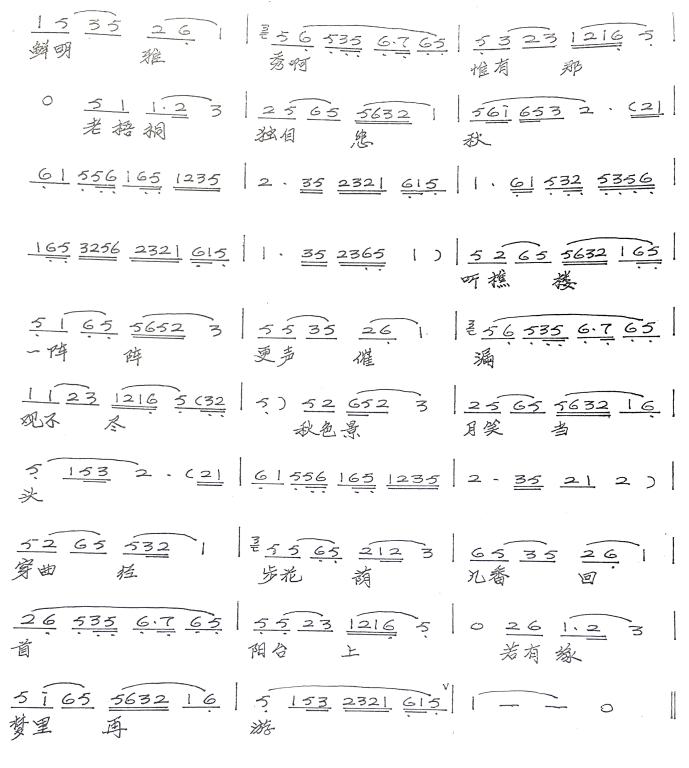 1 5 3 5 2 6 1 | 5 6 5 3 5 6·7 6 5 | 5 3 2 3 1 2 1 6 5 |
鲜明 雅 秀啊 惟有 那
0 5 1 1·2 3 | 2 5 6 5 5632 1 | 561 653 2· (21 |
老梧桐 独自 秋
61 556 165 1235 | 2· 35 2321 615 | 1· 61 532 5356 |
165 3256 2321 615 | 1· 35 2365 1 ) | 5 2 6 5 5632 165 |
听樵 楼
5 1 6 5 5652 3 | 5 5 3 5 2 6 1 | 5 6 5 3 5 6·7 6 5 |
一阵 阵 更声 催 漏
1 1 2 3 1216 5 (32 | 5 ) 5 2 652 3 | 2 5 6 5 5632 1 6 |
观不 尽 秋色景 月笑 当
5 153 2· (21 | 61 556 165 1235 | 2· 35 21 2 ) |
头
5 2 6 5 532 1 | 5 5 6 5 212 3 | 6 5 3 5 2 6 1 |
穿曲 径 步花 荫 几番 回
2 6 5 3 5 6·7 6 5 | 5 5 2 3 1216 5 | 0 2 6· 1·2 3 |
首 阳台 上 若有缘
5 1 6 5 5632 1 6 | 5 153 2321 615 | 1 — — 0 ‖
梦里 再 游